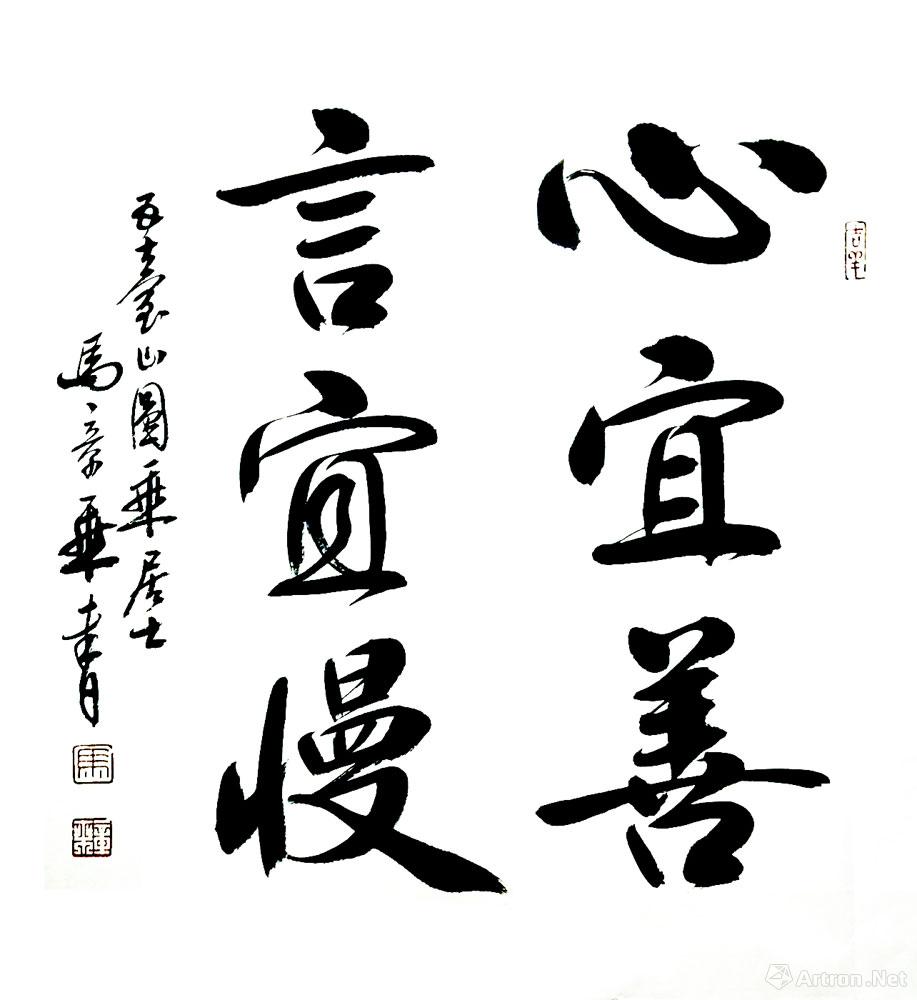 心宜善
言宜慢
五臺山圓乘居士
馬
Artron.Net